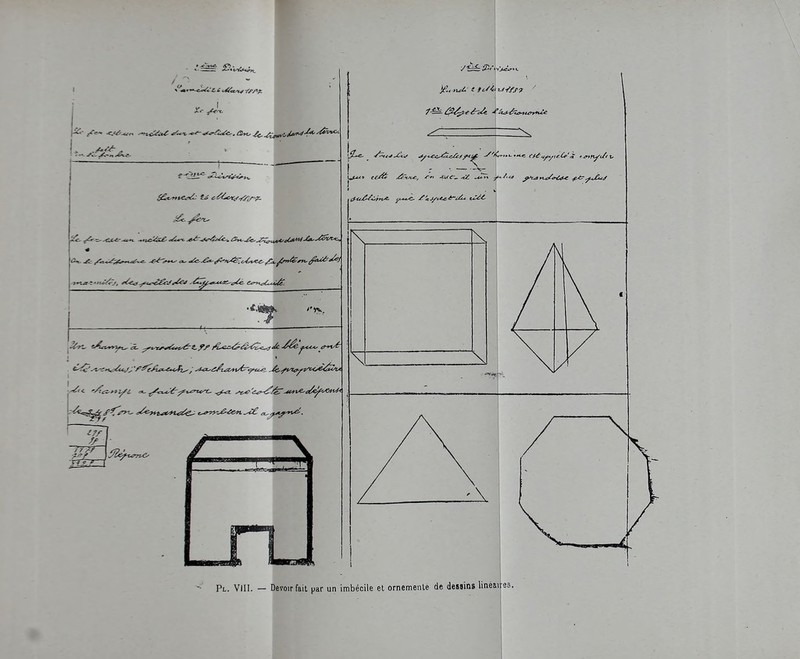 2ème Division
Samedi 26 Mars 1887
Le fer
Le fer est un métal dur et solide. On le trouve dans la terre
fait
2ème Division
Samedi 26 Mars 1887
Le fer
Le fer est un métal dur et solide. On le trouve dans la terre
On le fait fondre et on a de la fonte. Avec la fonte on fait des
marmites, des poêles des tuyaux de conduite
Un champ a produit 298 hectolitres de blé qui ont
été vendus chacun ; sachant que le propriétaire
du champ a fait pour sa récolte une dépense
de on demande combien il a gagné.
298
Réponse
1ère Division
Lundi
1ère Objet de l'Astronomie
De tous les spectacles que l'homme est appelé à
sur cette terre, en est-il un plus grandiose et plus
sublime que l'aspect du ciel
Pl. VIII. — Devoir fait par un imbécile et ornementé de dessins linéaires.